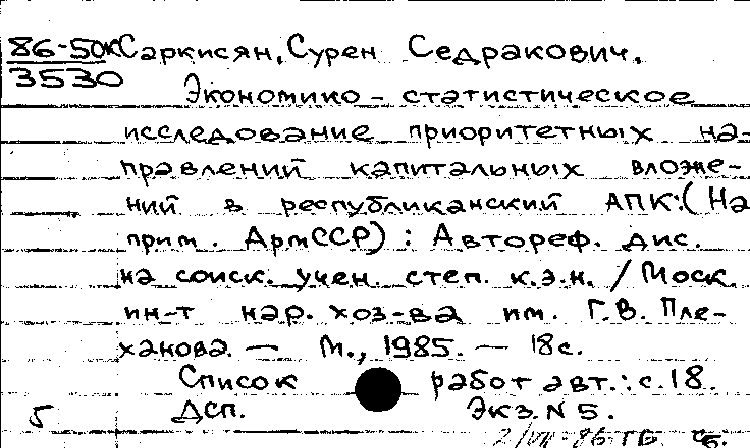 86-50К Саркисян, Сурен Седракович.
3530
Экономико-статистическое
исследование приоритетных на-
правлений капитальных вложе-
ний в республиканский АПК: (На
прим. АрмССР) : Автореф. дис.
на соиск. учен. степ. к.э.н. / Моск
ин-т нар. хоз-ва им. Г.В. Пле-
ханова. — М., 1985. — 18с.
Список работ авт.: с.18.
5 Дсп. Экз. N 5.